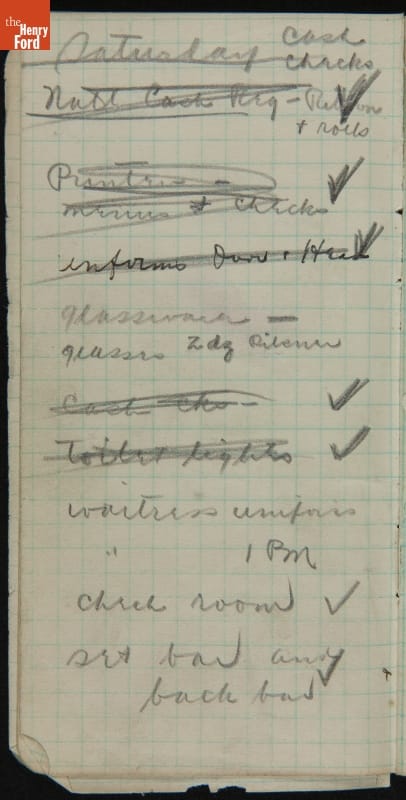 the
Henry
Ford
Saturday
Cash
checks
Natl Cash Reg - Ribbon
+ rolls
Printer -
menus + checks
uniforms Door + Head
glassware -
glasses 2 dz Pilsner
Cash cks -
Toilet lights
waitress uniforms
" 1 PM
check room
set bar and
back bar